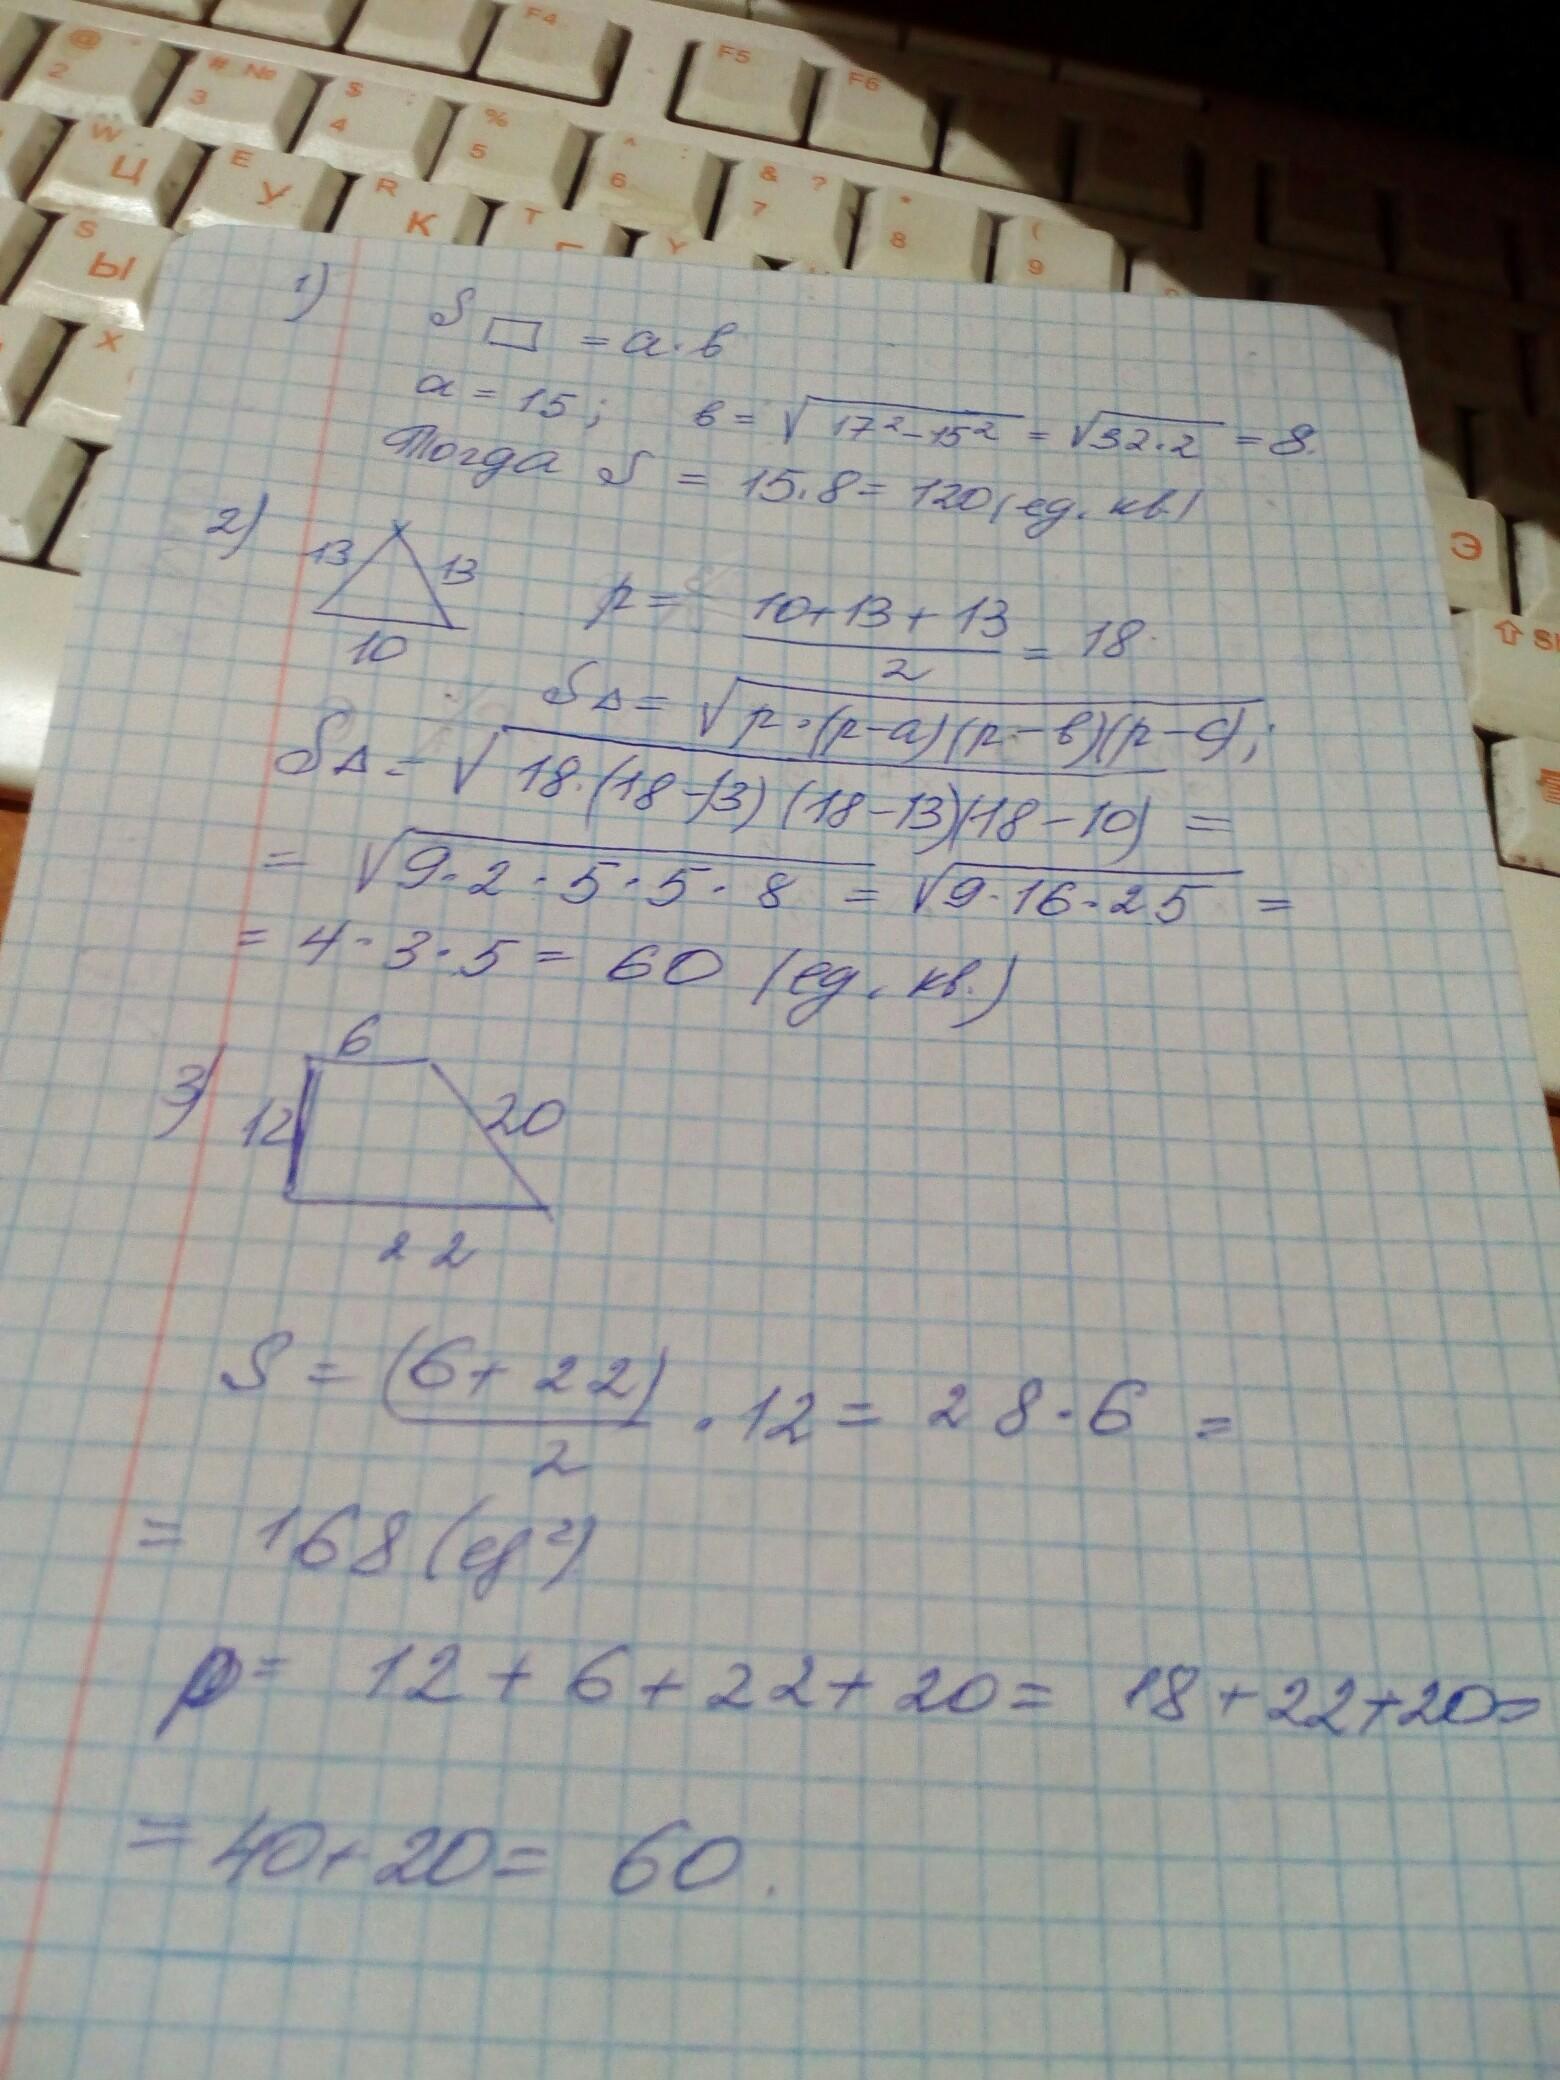 F4
F5
F6
@
2
# №
3
$ ;
4
%
5
^ :
6
& ?
7
*
8
(
9
W
Ц
E
У
R
К
T
Y
S
Ы
X
Э
1)
S▭ = a·b
a = 15; b = √(17²-15²) = √(32·2) = 8.
Тогда S = 15·8 = 120 (ед. кв.)
2)
13
13
10
p = (10+13+13)/2 = 18
S△ = √(p·(p-a)(p-b)(p-c));
S△ = √(18·(18-13)(18-13)(18-10)) =
= √(9·2·5·5·8) = √(9·16·25) =
= 4·3·5 = 60 (ед. кв.)
3)
6
12
20
22
S = (6+22)/2 · 12 = 28·6 =
= 168 (ед²)
p = 12 + 6 + 22 + 20 = 18 + 22 + 20 =
= 40 + 20 = 60.